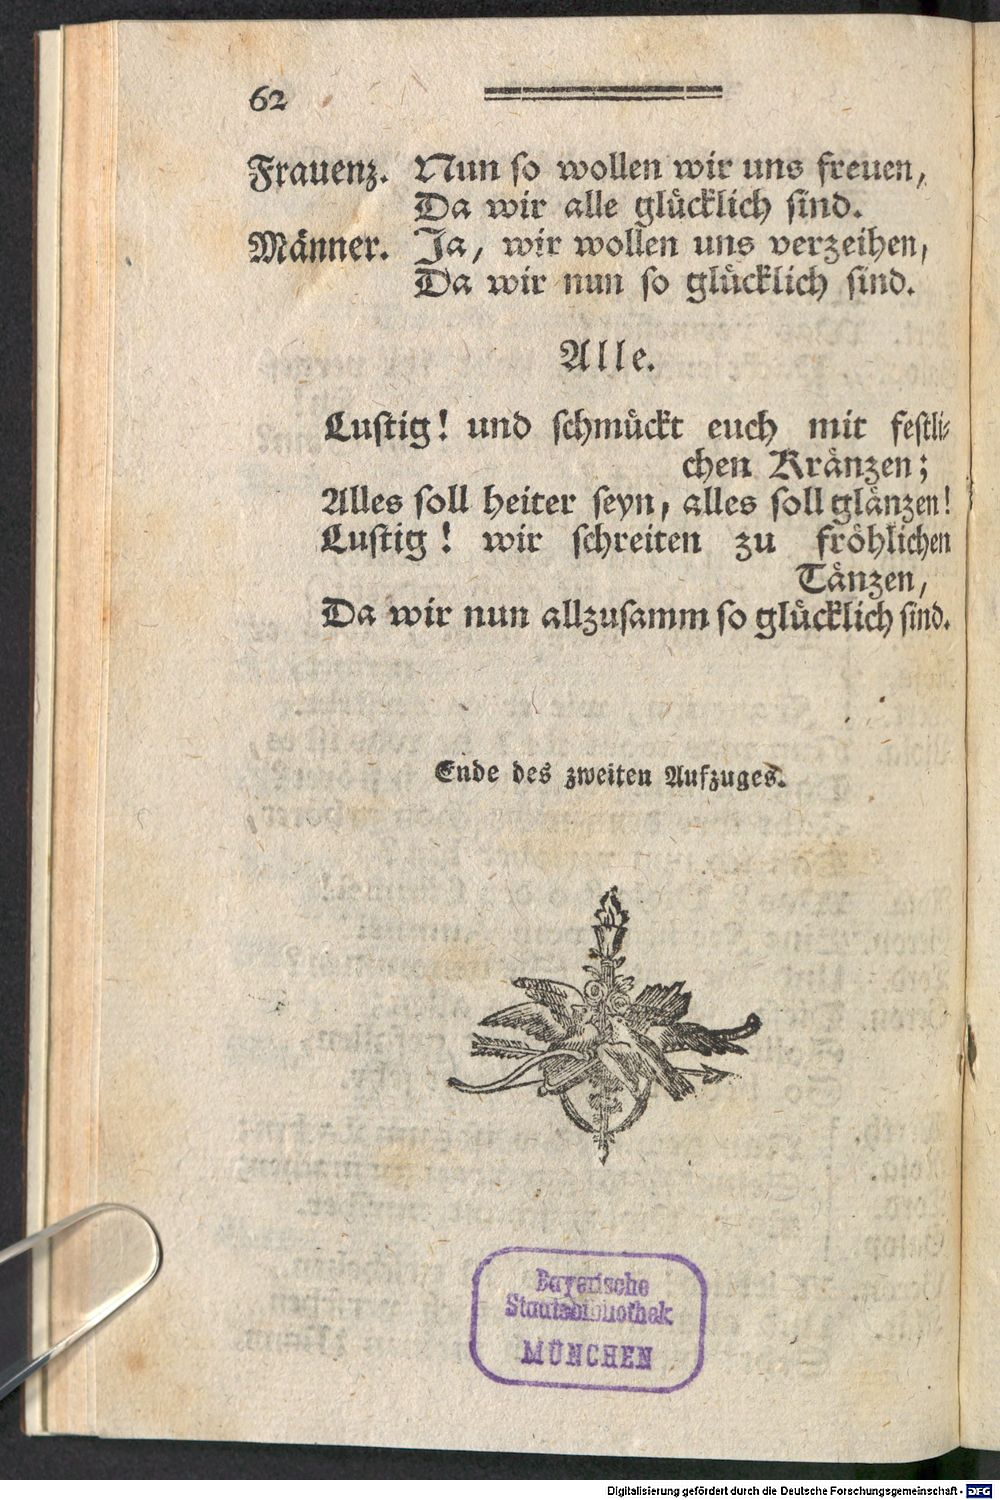 62
Frauenz. Nun so wollen wir uns freuen,
Da wir alle glücklich sind.
Männer. Ja, wir wollen uns verzeihen,
Da wir nun so glücklich sind.
Alle.
Lustig! und schmückt euch mit festli-
chen Kränzen;
Alles soll heiter seyn, alles soll glänzen!
Lustig! wir schreiten zu fröhlichen
Tänzen,
Da wir nun allzusamm so glücklich sind.
Ende des zweiten Aufzuges.
Bayerische
Staatsbibliothek
MÜNCHEN
Digitalisierung gefördert durch die Deutsche Forschungsgemeinschaft - DFG